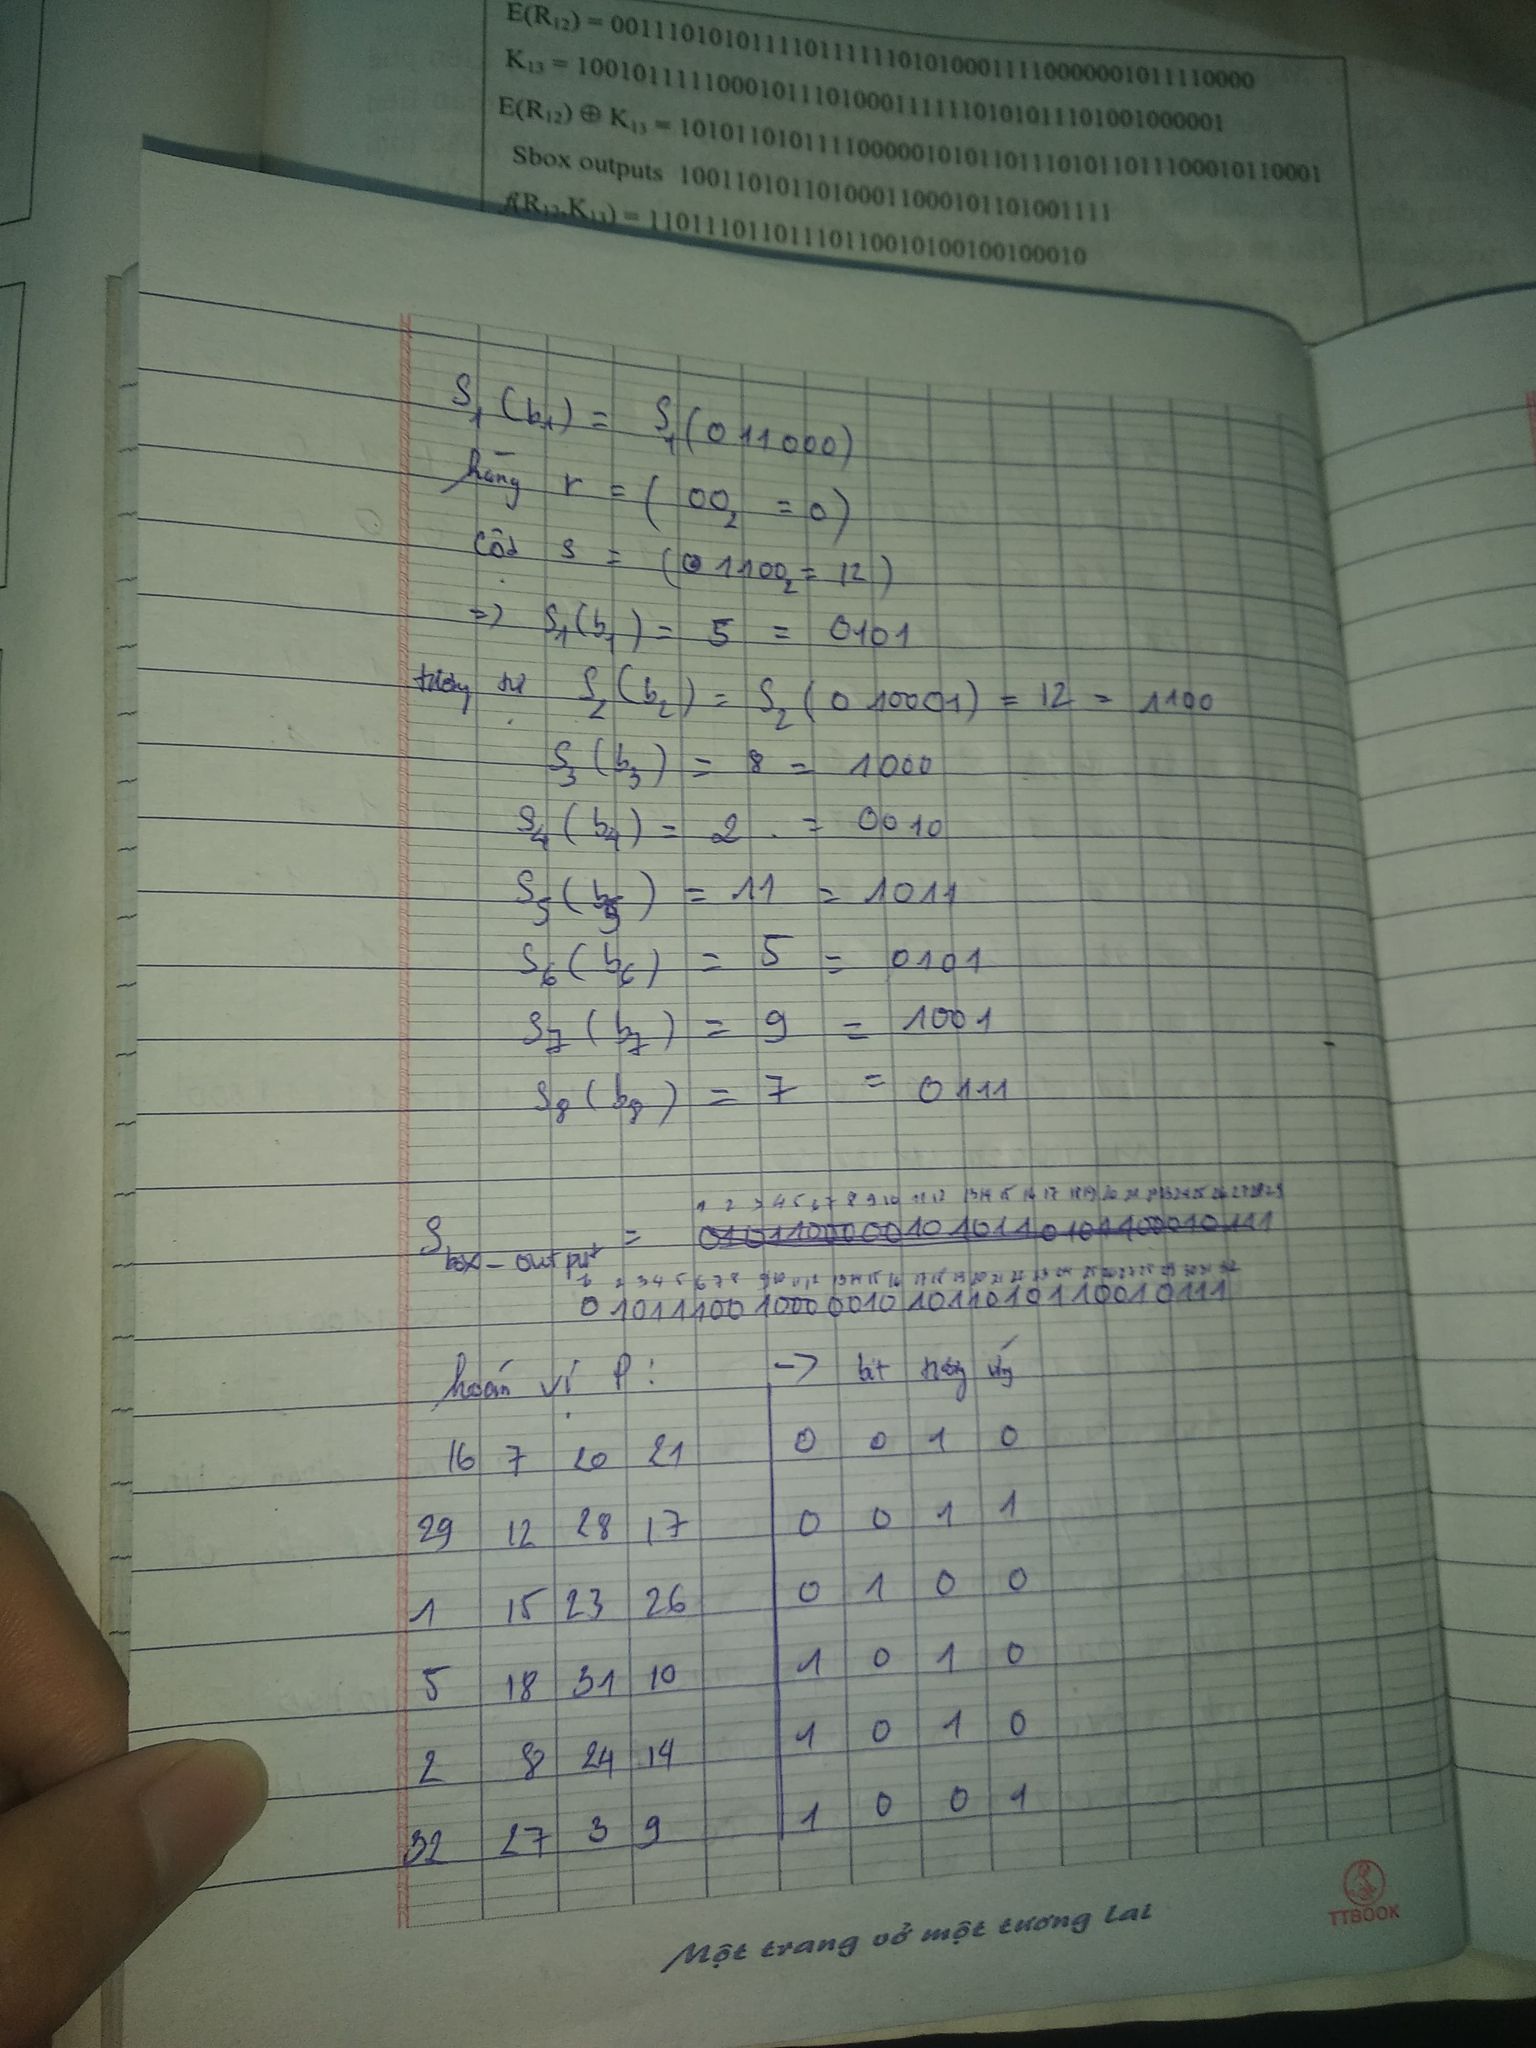 E(R₁₂) = 001110101011110111111010100011110000001011110000
K₁₃ = 100101111100010111010001111110101011101001000001
E(R₁₂) ⊕ K₁₃ = 101011010111100000101011011101011011100010110001
Sbox outputs 10011010110100011000101101001111
f(R₁₂,K₁₃) = 11011101101110110010100100100010
S₁(b₁) = S₁(011000)
hàng r = (00₂ = 0)
Cột s = (01100₂ = 12)
=> S₁(b₁) = 5 = 0101
tương tự S₂(b₂) = S₂(010001) = 12 = 1100
S₃(b₃) = 8 = 1000
S₄(b₄) = 2 = 0010
S₅(b₅) = 11 = 1011
S₆(b₆) = 5 = 0101
S₇(b₇) = 9 = 1001
S₈(b₈) = 7 = 0111
1 2 3 4 5 6 7 8 9 10 11 12 13 14 15 16 17 18 19 20 21 22 23 24 25 26 27 28 29
S box-output =
2 3 4 5 6 7 8 9 10 11 12 13 14 15 16 17 18 19 20 21 22 23 24 25 26 27 28 29 30 31 32
01011100100000101011010110010111
hoán vị P: -> bit tương ứng
16 7 20 21 0 0 1 0
29 12 28 17 0 0 1 1
1 15 23 26 0 1 0 0
5 18 31 10 1 0 1 0
2 8 24 14 1 0 1 0
32 27 3 9 1 0 0 1
Một trang vở một tương lai
TTBOOK